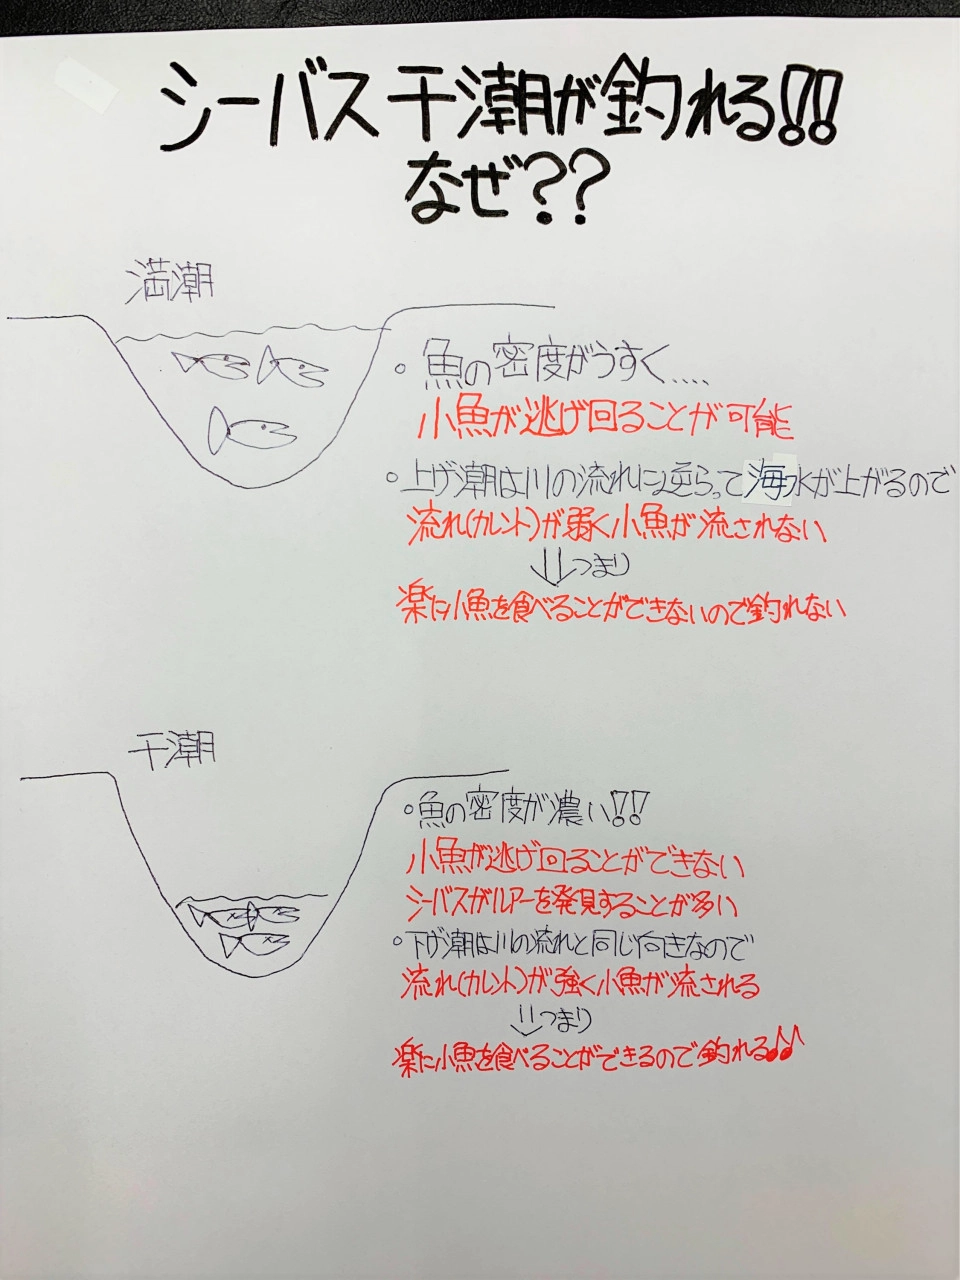 シーバス干潮が釣れる!!
なぜ??
満潮
・魚の密度がうすく.....
小魚が逃げ回ることが可能
・上げ潮は川の流れに逆らって海水が上がるので
流れ(カレント)が弱く小魚が流されない
⇓つまり
楽に小魚を食べることができないので釣れない
干潮
・魚の密度が濃い!!
小魚が逃げ回ることができない
シーバスがルアーを発見することが多い
・下げ潮は川の流れと同じ向きなので
流れ(カレント)が強く小魚が流される
⇓つまり
楽に小魚を食べることができるので釣れる♪♪